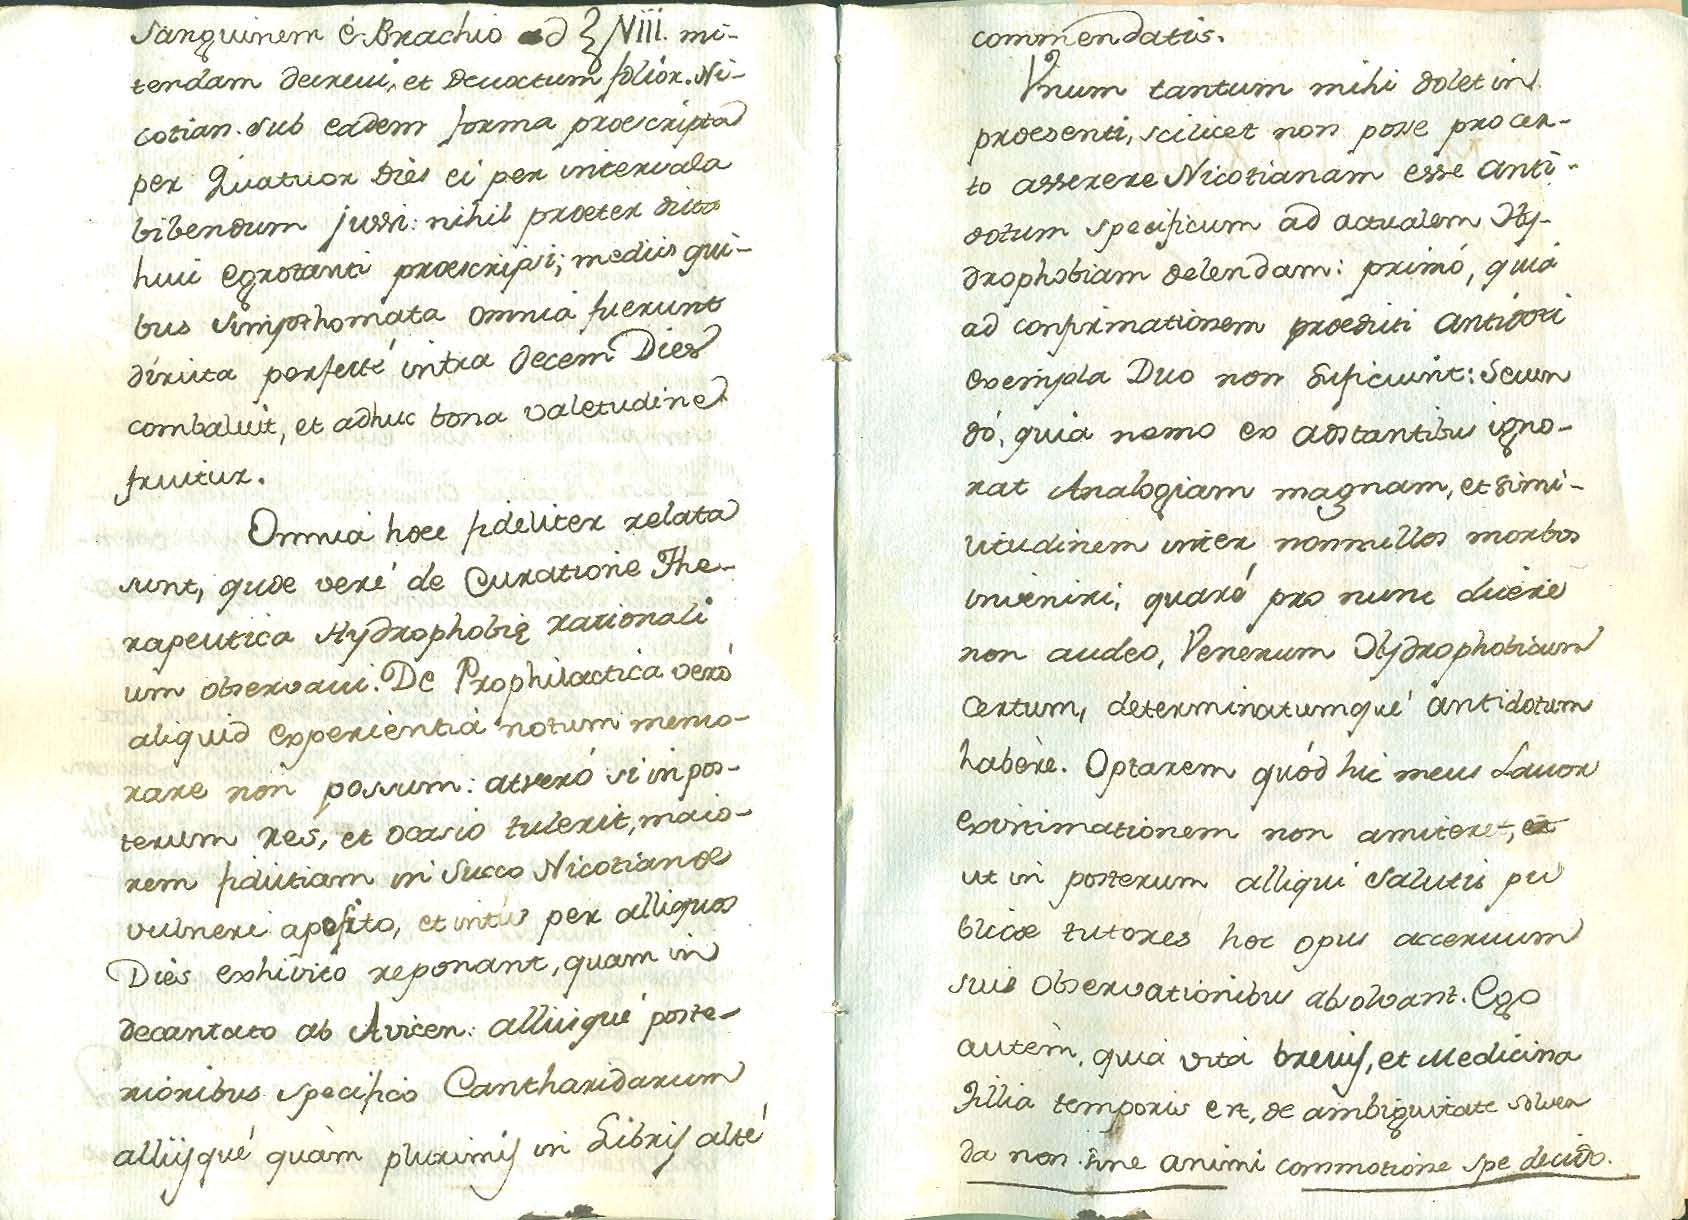 Sanguinem é Brachio ad ℥ Viii. mi-
tendam decrevi, et decoctum folior. Ni-
cotian. sub eadem forma proescripta
per Quatuor Diès ei per intervala
bibendum jussi: nihil proeter dicta
huic egrotanti proescripsi; mediis qui-
bus Simpthomata omnia fuerunt
diruta perfecté intra decem Dies
combaluit, et adhuc bona valetudine
fruitur.
Omnia hoec fideliter relata
sunt, quoe veré de Curatione The-
rapeutica Hydrophobię rationali
um observavi. De Prophilactica veró
aliquid experientia notum memo-
rare non possum: atveró si in pos-
terum res, et ocasio tulerit, maio-
rem fidutiam in Succo Nicotianoe
vulneri aposito, et intús per alliquos
Diès exhivito reponant, quam in
decantato ab Avicen: alliisqué poste-
rioribus specifico Cantharidarum
alliisqué quàm plurimis in Libris alté
commendatis.
Vnum tantum mihi dolet in
proesenti, scilicet non posse pro cer-
to asserere Nicotianam esse anti-
dotum specificum ad actualem Hy-
drophobiam delendam: primó, quia
ad confirmationem proediti antidoti
exempla Duo non suficiunt: Secun
dó, quia nemo ex adstantibus igno-
rat Analogiam magnam, et simi-
litudinem inter nonnullos morbos
inveniri; quaré pro nunc dicere
non audeo, Venenum Hydrophobicum
certum, determinatumqué antidotum
habère. Optarem quód hic meus Lavor
existimationem non amiteret,
ut in posterum alliqui Salutis pu
blicoe tutores hoc opus accervum
suis observationibus absolvant. Ego
autèm, quia vita brevis, et Medicina
Fillia temporis est, de ambiguitate solven
da non sine animi commotione spe decido.